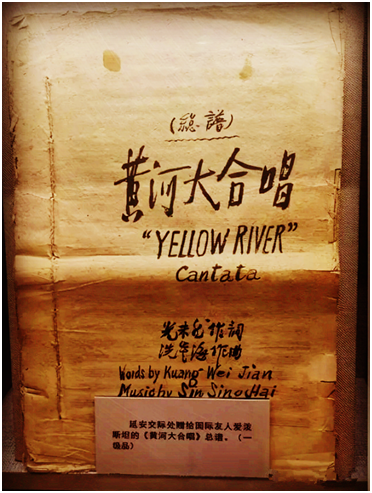 (總譜)
黄河大合唱
“YELLOW RIVER”
Cantata
光未然作詞
洗星海作曲
Words by Kuang Wei Jian
Music by Sin Sino Hai
延安交际处赠给国际友人爱泼
斯坦的《黄河大合唱》总谱。（一
级品）